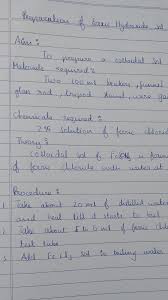 Preparation of Ferric Hydroxide sol
Aim :
To prepare a colloidal sol
Materials required :
Two 100 ml beakers, funnel
glass rod, tripod stand, wire gauze
Chemicals required :
2% solution of ferric chloride
Theory :
Colloidal sol of is form
of ferric chloride with water at
Procedure :
1. Take about 20 ml of distilled water
and heat till it starts to boil
2. Take about 5 to 6 ml of ferric chlor
test tube
3. Add FeCl3 sol to boiling water